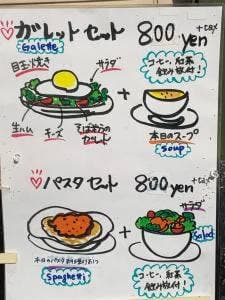 ガレットセット 800yen +tax
Galette
コーヒー、紅茶
飲み放付!
目玉焼き
サラダ
+
生ハム
チーズ
そば粉の
ガレット
本日のスープ
soup
パスタセット 800yen +tax
サラダ
+
Salad
本日のパスタ
Spaghetti
コーヒー、紅茶
飲み放付!